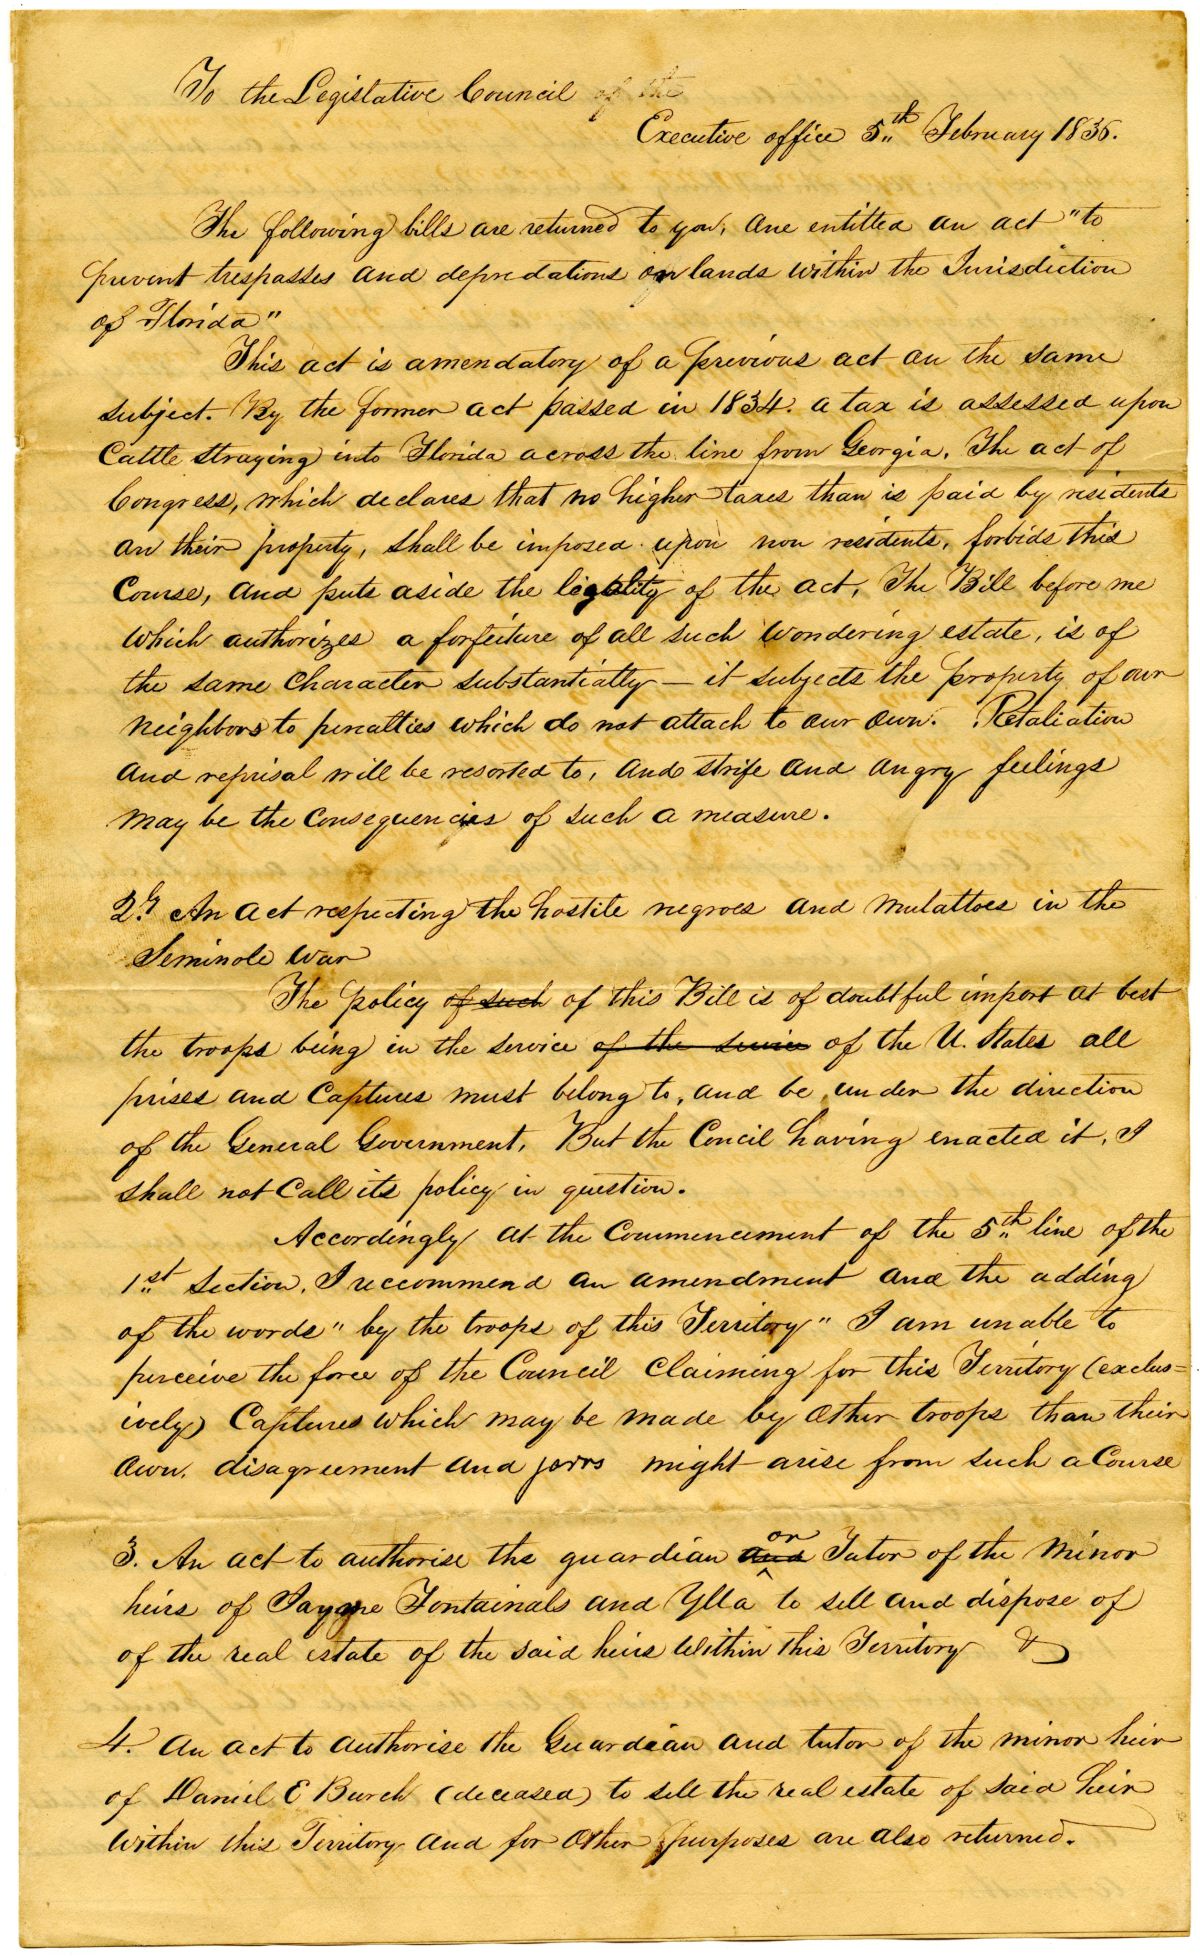 To the Legislative Council of the
Executive office 5th February 1836.
The following bills are returned to you, One entitled an act "to
prevent trespasses and depredations on lands within the Jurisdiction
of Florida"
This act is amendatory of a previous act on the same
subject. By the former act passed in 1834. a tax is assessed upon
Cattle straying into Florida across the line from Georgia. The act of
Congress, which declares that no higher taxes than is paid by residents
on their property, shall be imposed upon non residents, forbids this
Course, and puts aside the legality of the act, The Bill before me
which authorizes a forfeiture of all such wondering estate, is of
the same Character substantially — it subjects the property of our
neighbors to penalties which do not attach to our own. Retaliation
and reprisal will be resorted to, and strife and angry feelings
may be the Consequencies of such a measure.
2d An act respecting the hostile negroes and mulattoes in the
Seminole war
The policy of such of this Bill is of doubtful import at best
the troops being in the service of the service of the U. States all
prises and Captures must belong to, and be under the direction
of the General Government, But the Concil having enacted it, I
shall not Call its policy in question.
Accordingly at the Commencement of the 5th line of the
1st Section, I reccommend an amendment and the adding
of the words " by the troops of this Territory" I am unable to
perceive the force of the Council Claiming for this Territory (exclus=
ively) Captures which may be made by other troops than their
own. disagreement and jarrs might arise from such a Course
3. An act to authorise the guardian and or Tutor of the Minor
heirs of Jayme Fontainals and Ylla to sell and dispose of
of the real estate of the said heirs within this Territory &
4. An act to authorise the Guardian and tutor of the minor heir
of Daniel E Burch (deceased) to sell the real estate of said heir
within this Territory and for other purposes are also returned.